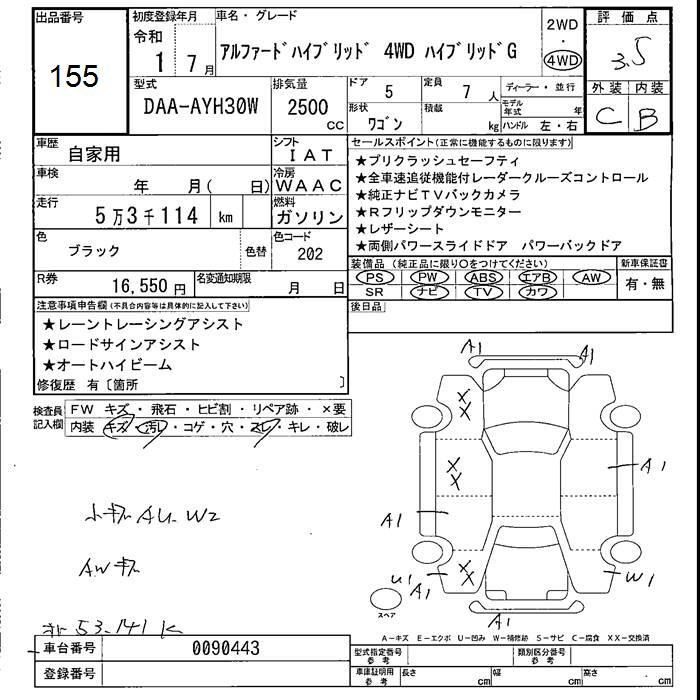 出品番号
155
初度登録年月
令和
1 7月
車名・グレード
アルファードハイブリッド 4WD ハイブリッドG
2WD
・
4WD
評価点
3.5
外装 内装
C B
型式
DAA-AYH30W
排気量
2500
cc
ドア
5
定員
7 人
形状
ワゴン
積載
kg
ディーラー・並行
モデル年式 年
ハンドル 左・右
車歴
自家用
シフト
IAT
車検
年 月( 日)
冷房
WAAC
走行
5万3千114 km
燃料
ガソリン
色
ブラック
色替
色コード
202
R券
16,550 円
名変通知期限
月 日
セールスポイント(正常に機能するものに限ります)
★プリクラッシュセーフティ
★全車速追従機能付レーダークルーズコントロール
★純正ナビTVバックカメラ
★Rフリップダウンモニター
★レザーシート
★両側パワースライドドア パワーバックドア
装備品 (純正品に限り○をつけてください)
PS PW ABS エアB AW
SR ナビ TV カワ
新車保証書
有・無
後日品
注意事項申告欄(不具合内容等は具体的に記入して下さい)
★レーントレーシングアシスト
★ロードサインアシスト
★オートハイビーム
修復歴 有〔箇所 〕
検査員記入欄
FW キズ・飛石・ヒビ割・リペア跡・×要
内装 キズ・汚レ・コゲ・穴・スレ・キレ・破レ
小キズ AU W2
AWキズ
53.141K
A1
A1
XX
XX
A1
A1
XX
U1
A1
W1
A1
スペア
A-キズ E-エクボ U-凹み W-補修跡 S-サビ C-腐食 XX-交換済
車台番号
0090443
登録番号
型式指定番号
参考
類別区分番号
参考
車庫証明用
参考
長さ cm
幅 cm
高さ cm